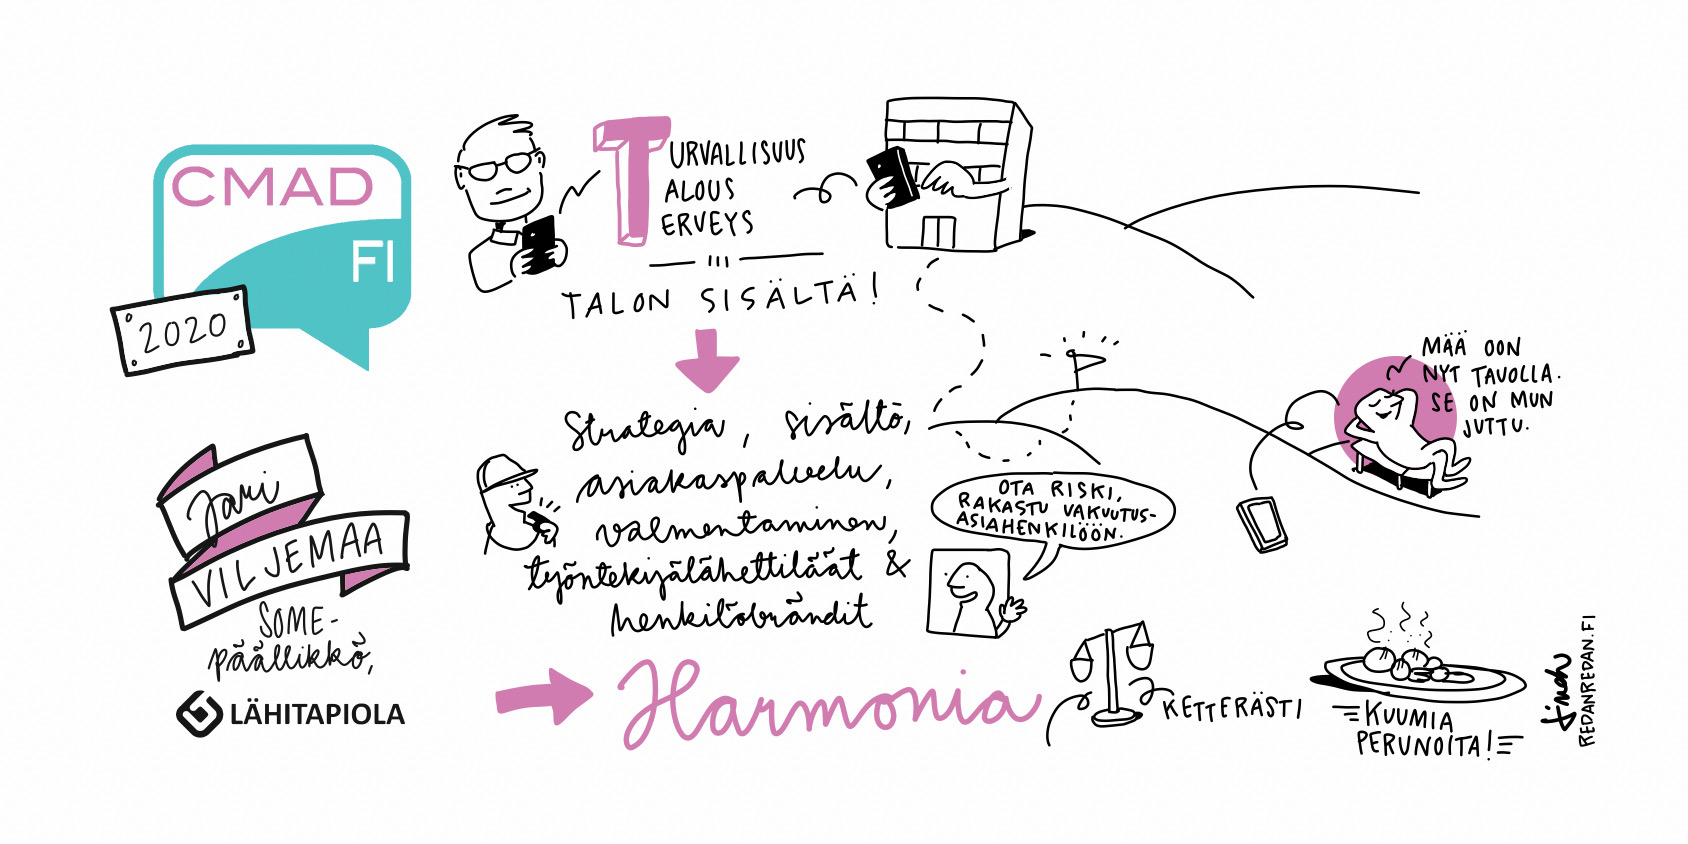 CMAD
FI
2020
Jari
VILJEMAA
SOME-
päällikkö,
LÄHITAPIOLA
TURVALLISUUS
ALOUS
ERVEYS
TALON SISÄLTÄ!
Strategia, sisältö,
asiakaspalvelu,
valmentaminen,
työntekijälähettiläät &
henkilöbrändit
Harmonia
OTA RISKI,
RAKASTU VAKUUTUS-
ASIAHENKILÖÖN.
MÄÄ OON
NYT TAVOLLA.
SE ON MUN
JUTTU.
KETTERÄSTI
KUUMIA
PERUNOITA!
REDANREDAN.FI